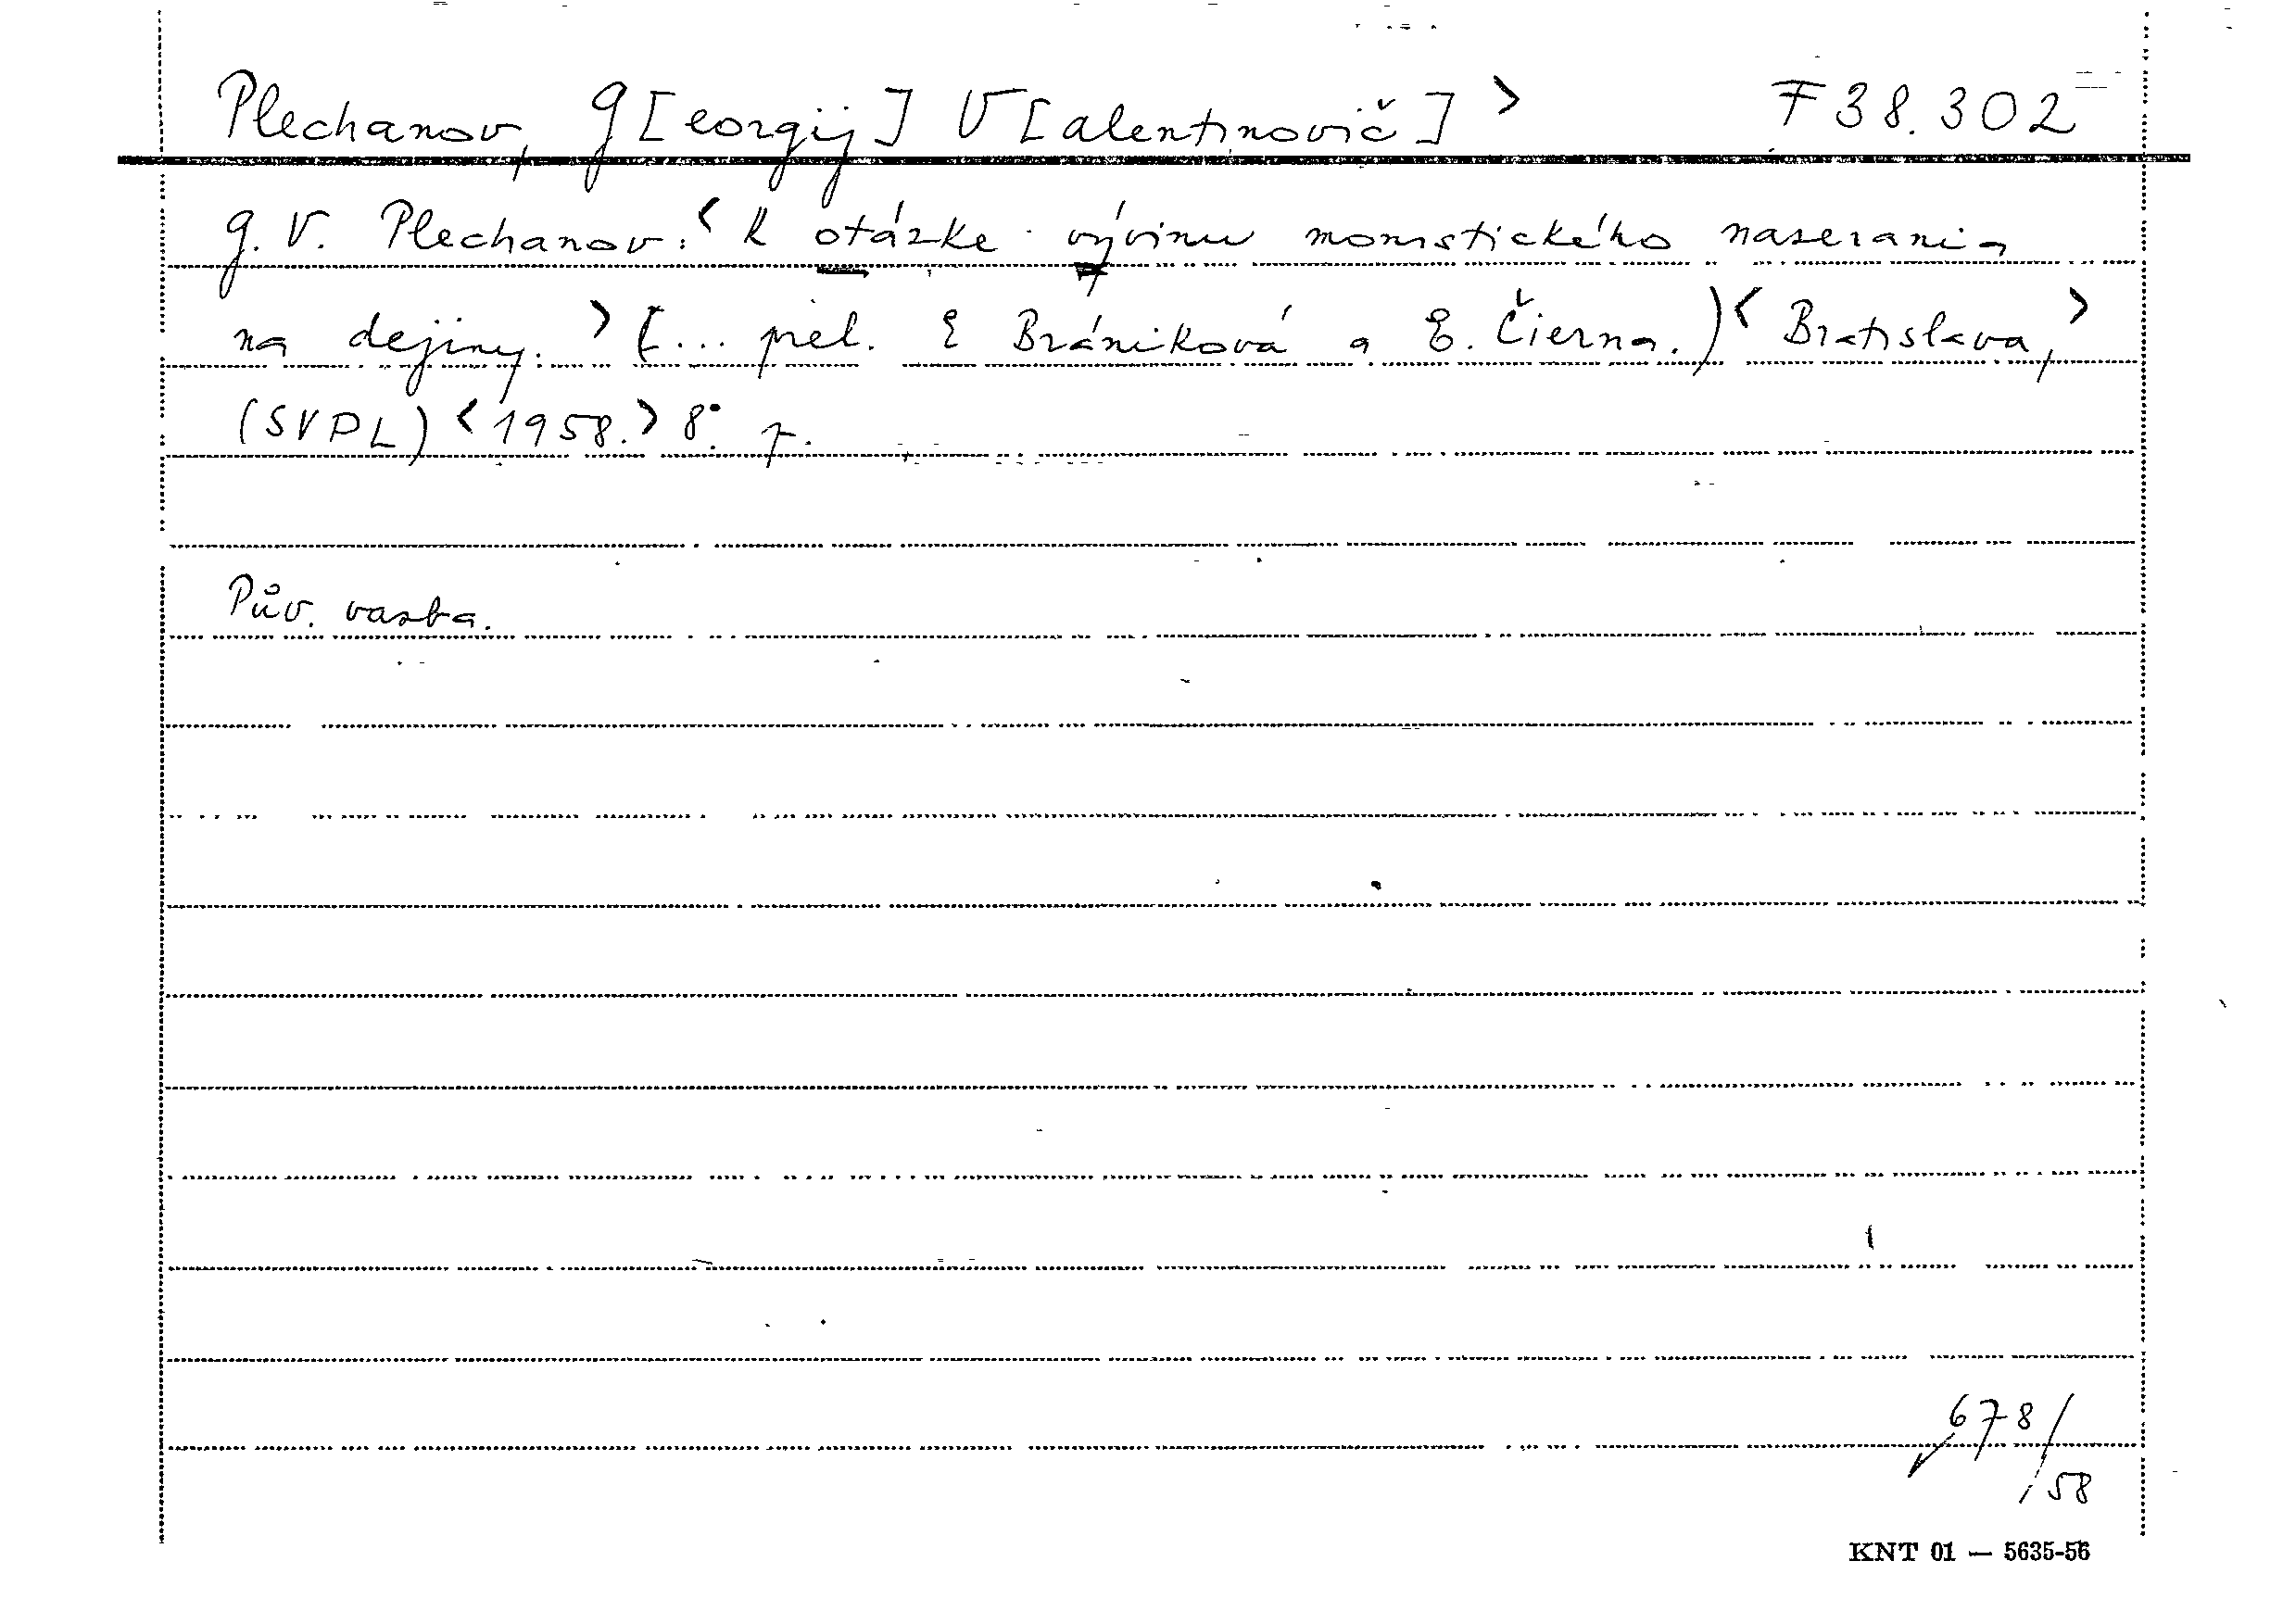 Plechanov, G[eorgij] V[alentinovič] > F 38.302
G. V. Plechanov: < K otázke vývinu monistického nazerania
na dejiny. > (... prel. E Brániková a E. Čierna.) < Bratislava, >
(SVPL) < 1958. > 8°. 7.
Pův. vazba.
678/
/58
KNT 01 — 5635-56